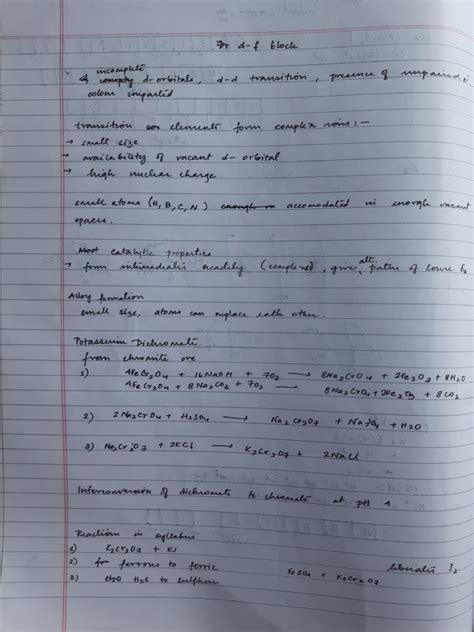 d-f block
incomplete
d-orbitals, d-d transition, presence of unpaired e
colour imparted
transition elements form complex ions :-
→ small size
→ availability of vacant d-orbital
→ high nuclear charge
small atoms (H, B, C, N) accomodated in enough vacant
spaces.
Most catalytic properties
alt.
→ form intermediates readily (complexes), give paths of lower Ea
Alloy formation
small size, atoms can replace each other.
Potassium Dichromate
from chromite ore
1) 4FeCr2O4 + 16NaOH + 7O2 → 8Na2CrO4 + 2Fe2O3 + 8H2O
4FeCr2O4 + 8Na2CO3 + 7O2 → 8Na2CrO4 + 2Fe2O3 + 8CO2
2) 2Na2CrO4 + H2SO4 → Na2Cr2O7 + Na2SO4 + H2O
3) Na2Cr2O7 + 2KCl → K2Cr2O7 + 2NaCl
Interconversion of dichromate to chromate at pH 4
Reactions in syllabus
1) K2Cr2O7 + KI liberates I2
2) for ferrous to ferric FeSO4 + K2Cr2O7
3) H2S to sulphur